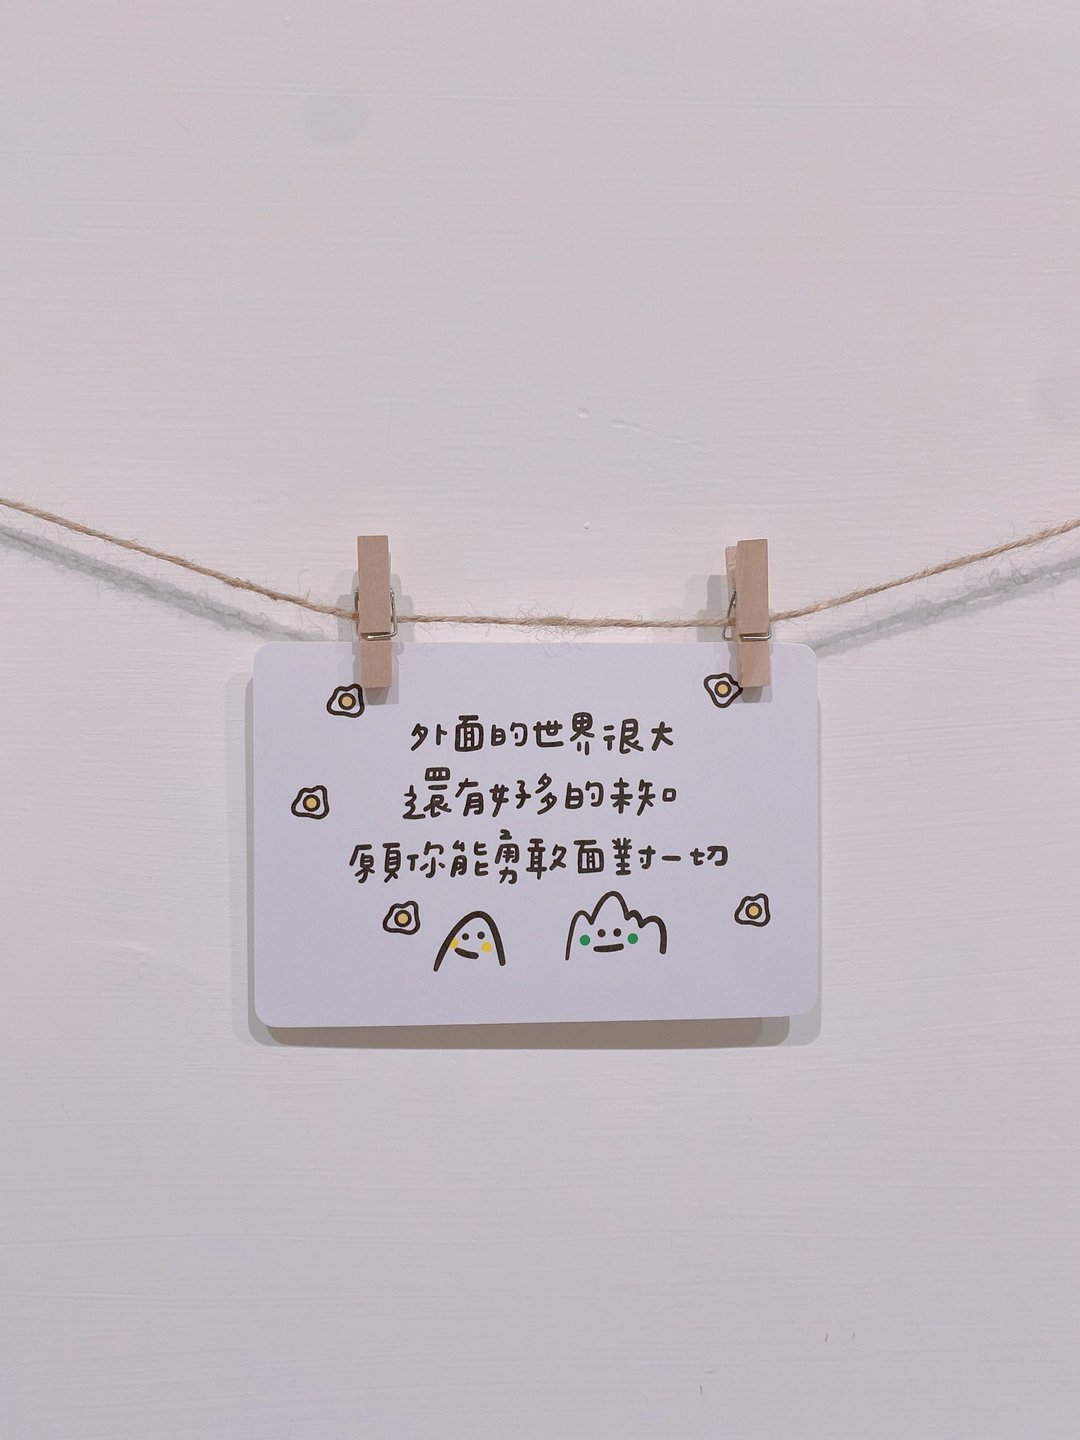 外面的世界很大
還有好多的未知
願你能勇敢面對一切